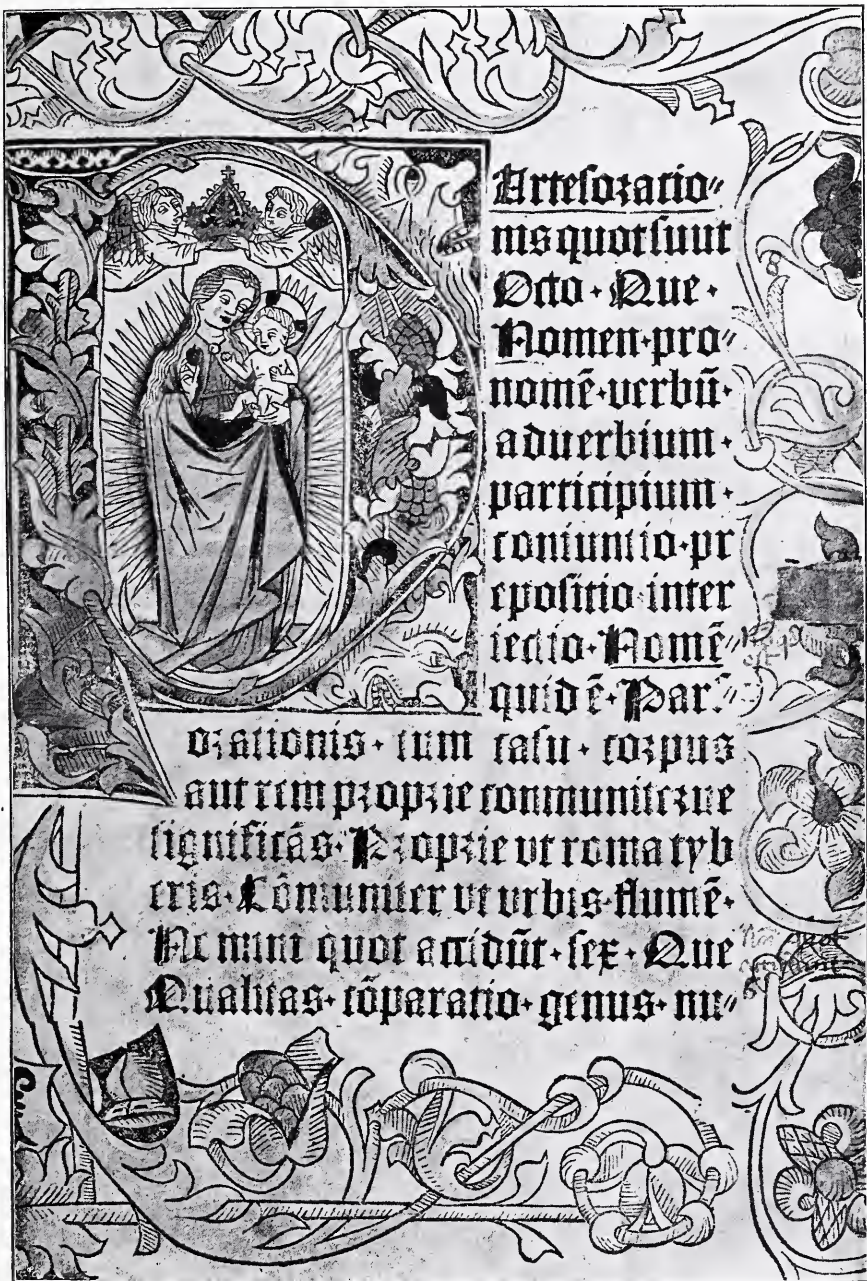 Partesoratio⸗
nis quot sunt
Octo · Que ·
Nomen · pro⸗
nomē · verbū ·
aduerbium ·
participium ·
coniunctio · pr
epositio inter
iectio · Nomē⸗
quid ē · Pars⸗
orationis · cum casu · corpus
aut rem proprie conmuniterue
significās · Proprie vt roma tyb
eris · Cōmuniter vt vrbis · flumē ·
Nomini quot accidūt · sex · Que
Qualitas · cōparatio · genus · nu⸗